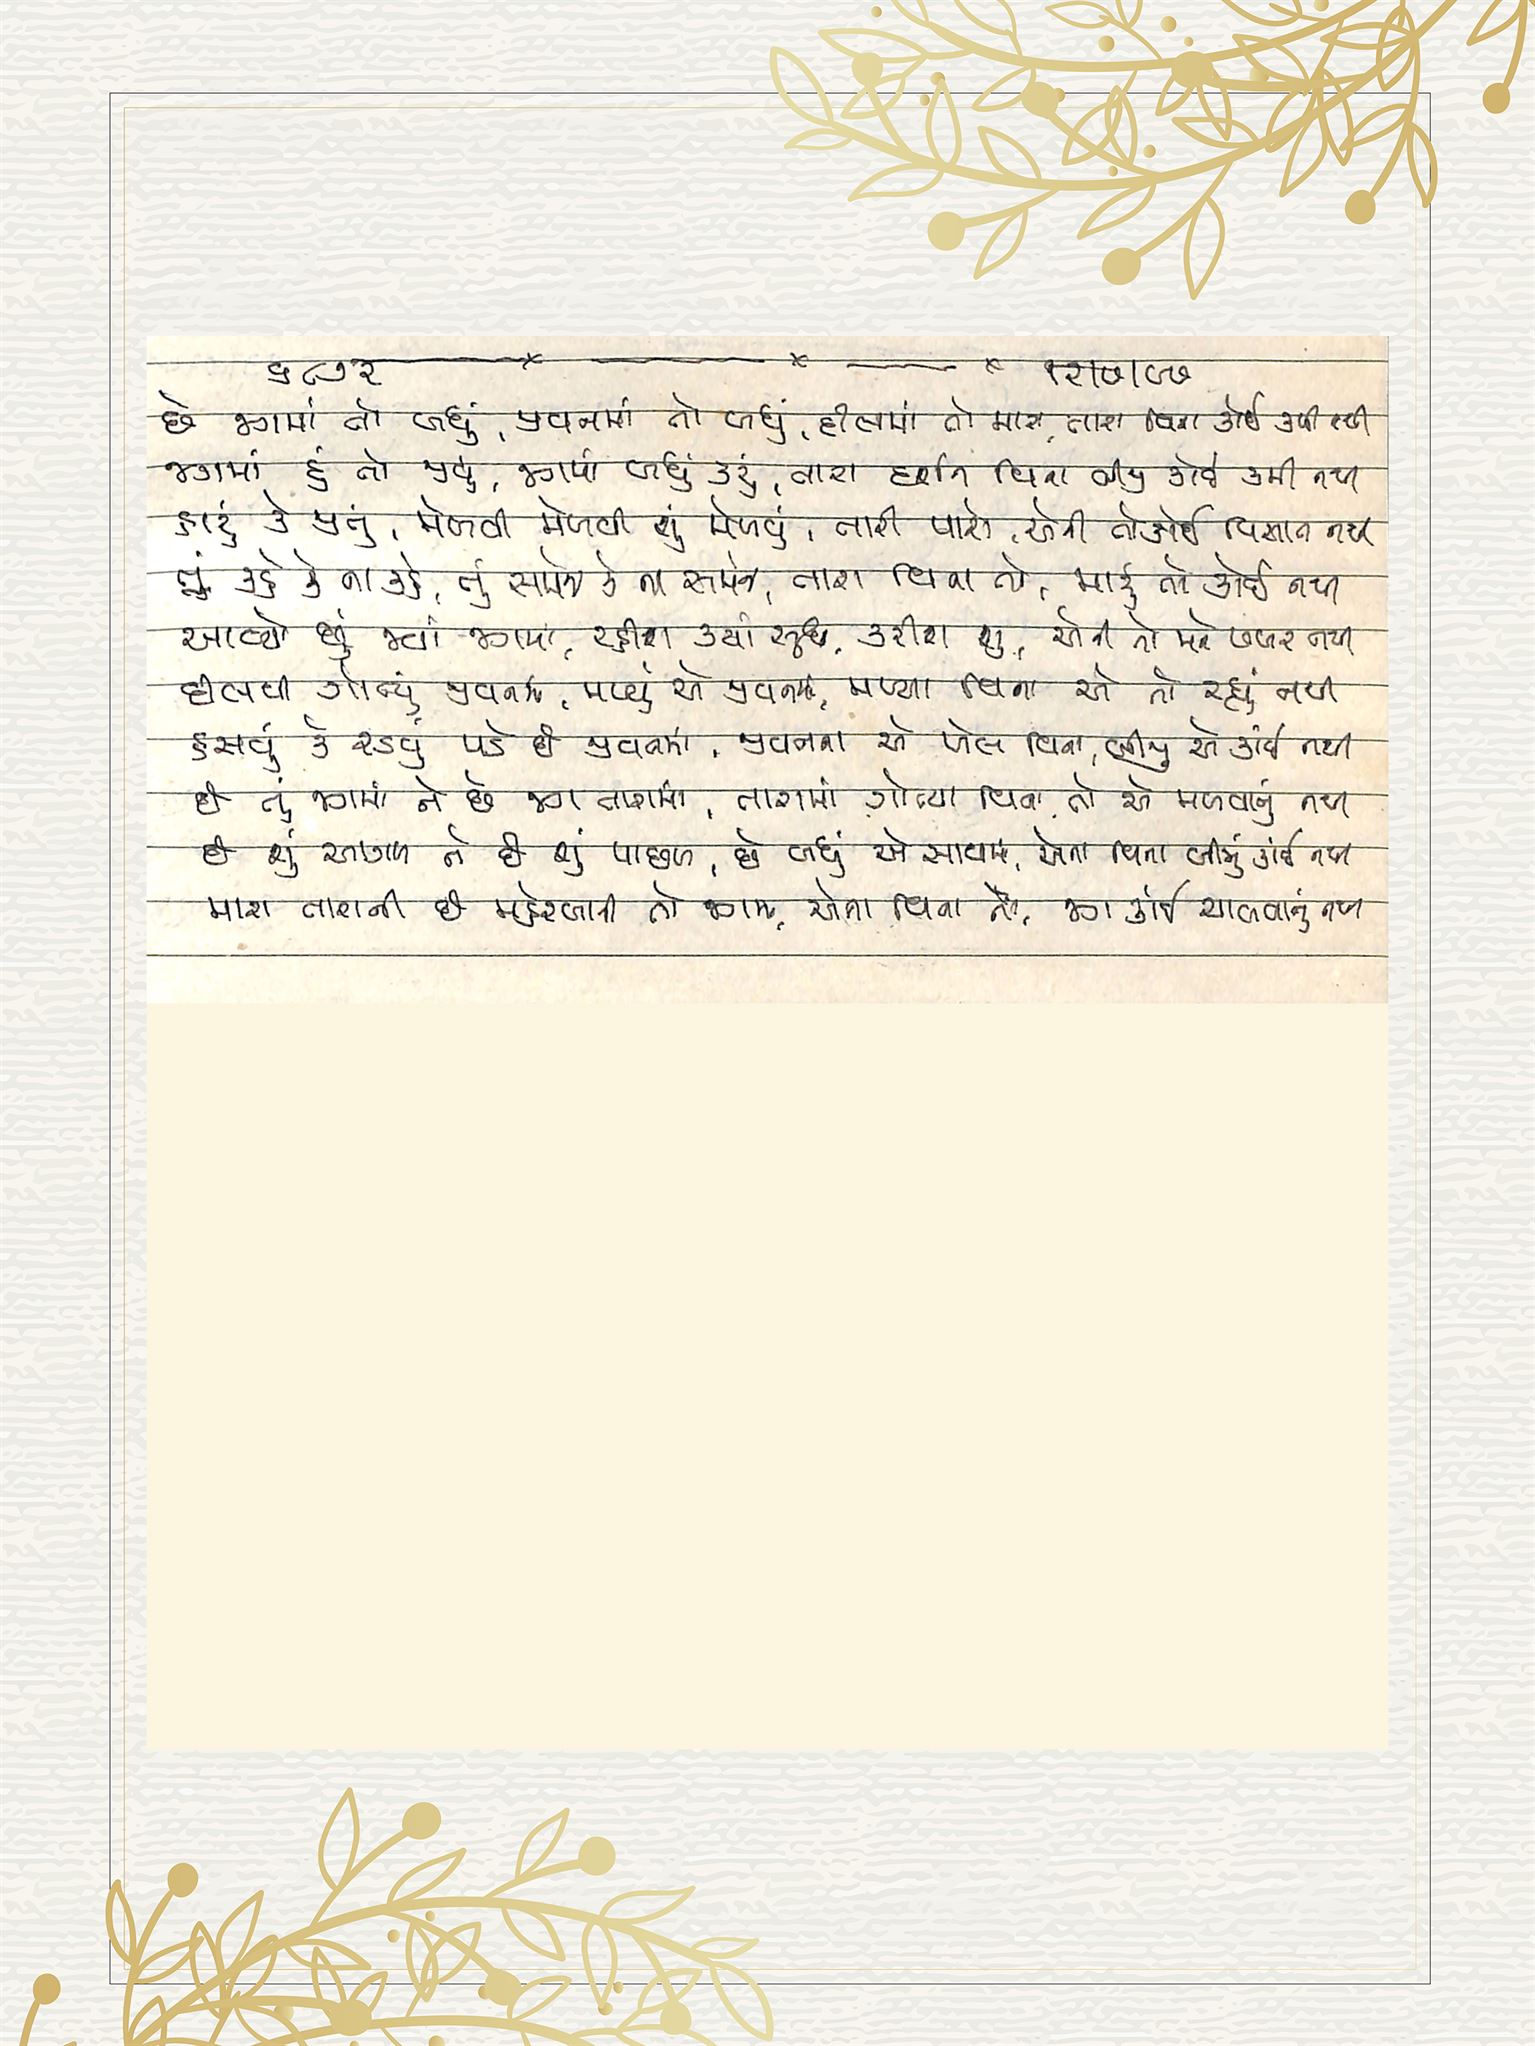 ૬૮૭૨
છે જગમાં તો બધું, જીવનમાં તો બધું, દીલમાં તો મારા, તારા વિના કોઈ કમી નથી
જગમાં હું તો જીવું, જગમાં બધું કરું, તારા દર્શન વિના બીજી કોઈ કમી નથી
હારું કે જીતું, મેળવી મેળવી શું મેળવું, તારી પાસે, એની તો કોઈ વિસાત નથી
તું કહે કે ના કહે, તું સમજે કે ના સમજે, તારા વિના તો, મારું તો કોઈ નથી
આવ્યો છું જ્યાં જગમાં, રહીશ ક્યાં સુધી, કરીશ શું, એની તો મને ખબર નથી
દીલથી ગોત્યું જીવનમાં, મળ્યું એ જીવનમાં, મળ્યા વિના એ તો રહ્યું નથી
હસવું કે રડવું પડે છે જીવનમાં, જીવનના એ ખેલ વિના, બીજું એ કાંઈ નથી
છે તું જગમાં ને છે જગ તારામાં, તારામાં ગોત્યા વિના તો એ મળવાનું નથી
છે શું આગળ ને છે શું પાછળ, છે બધું એ સાથમાં, એના વિના બીજું કાંઈ નથી
મારા તારાની છે મહેરબાની તો જગમાં, એના વિના તો, જગ કાંઈ ચાલવાનું નથી